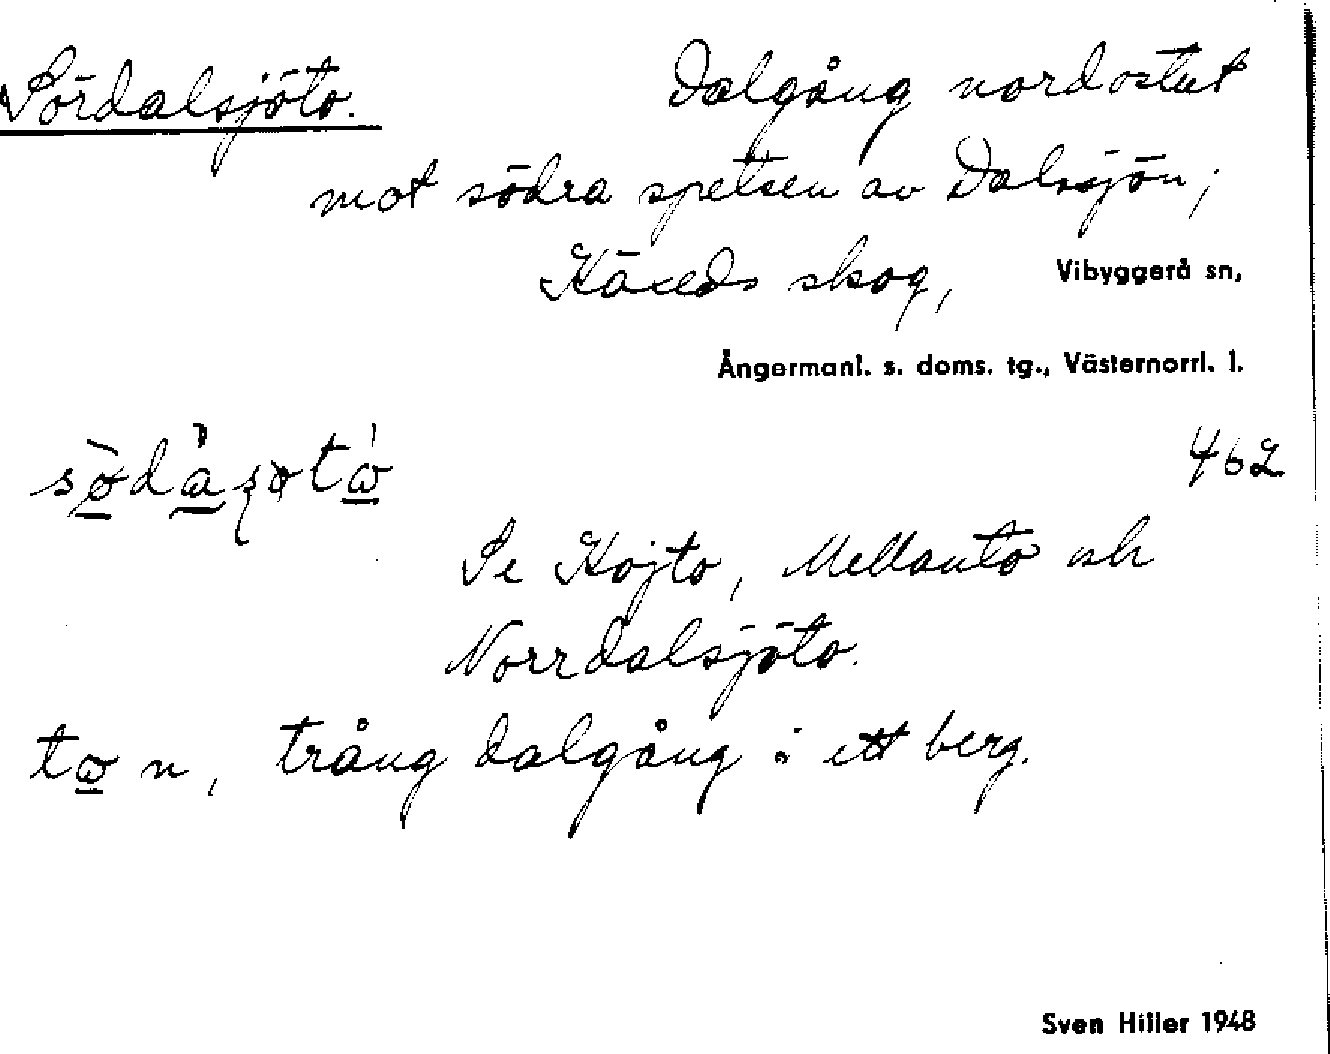 Sördalsjöto. Dalgång nordostut
mot södra spetsen av Dalssjön;
Käxeds skog, Vibyggerå sn,
Ångermanl. s. doms. tg., Västernorrl. l.
462
Se Kojto, Mellanto och
Norrdalsjöto.
to n, trång dalgång i ett berg.
Sven Hiller 1948